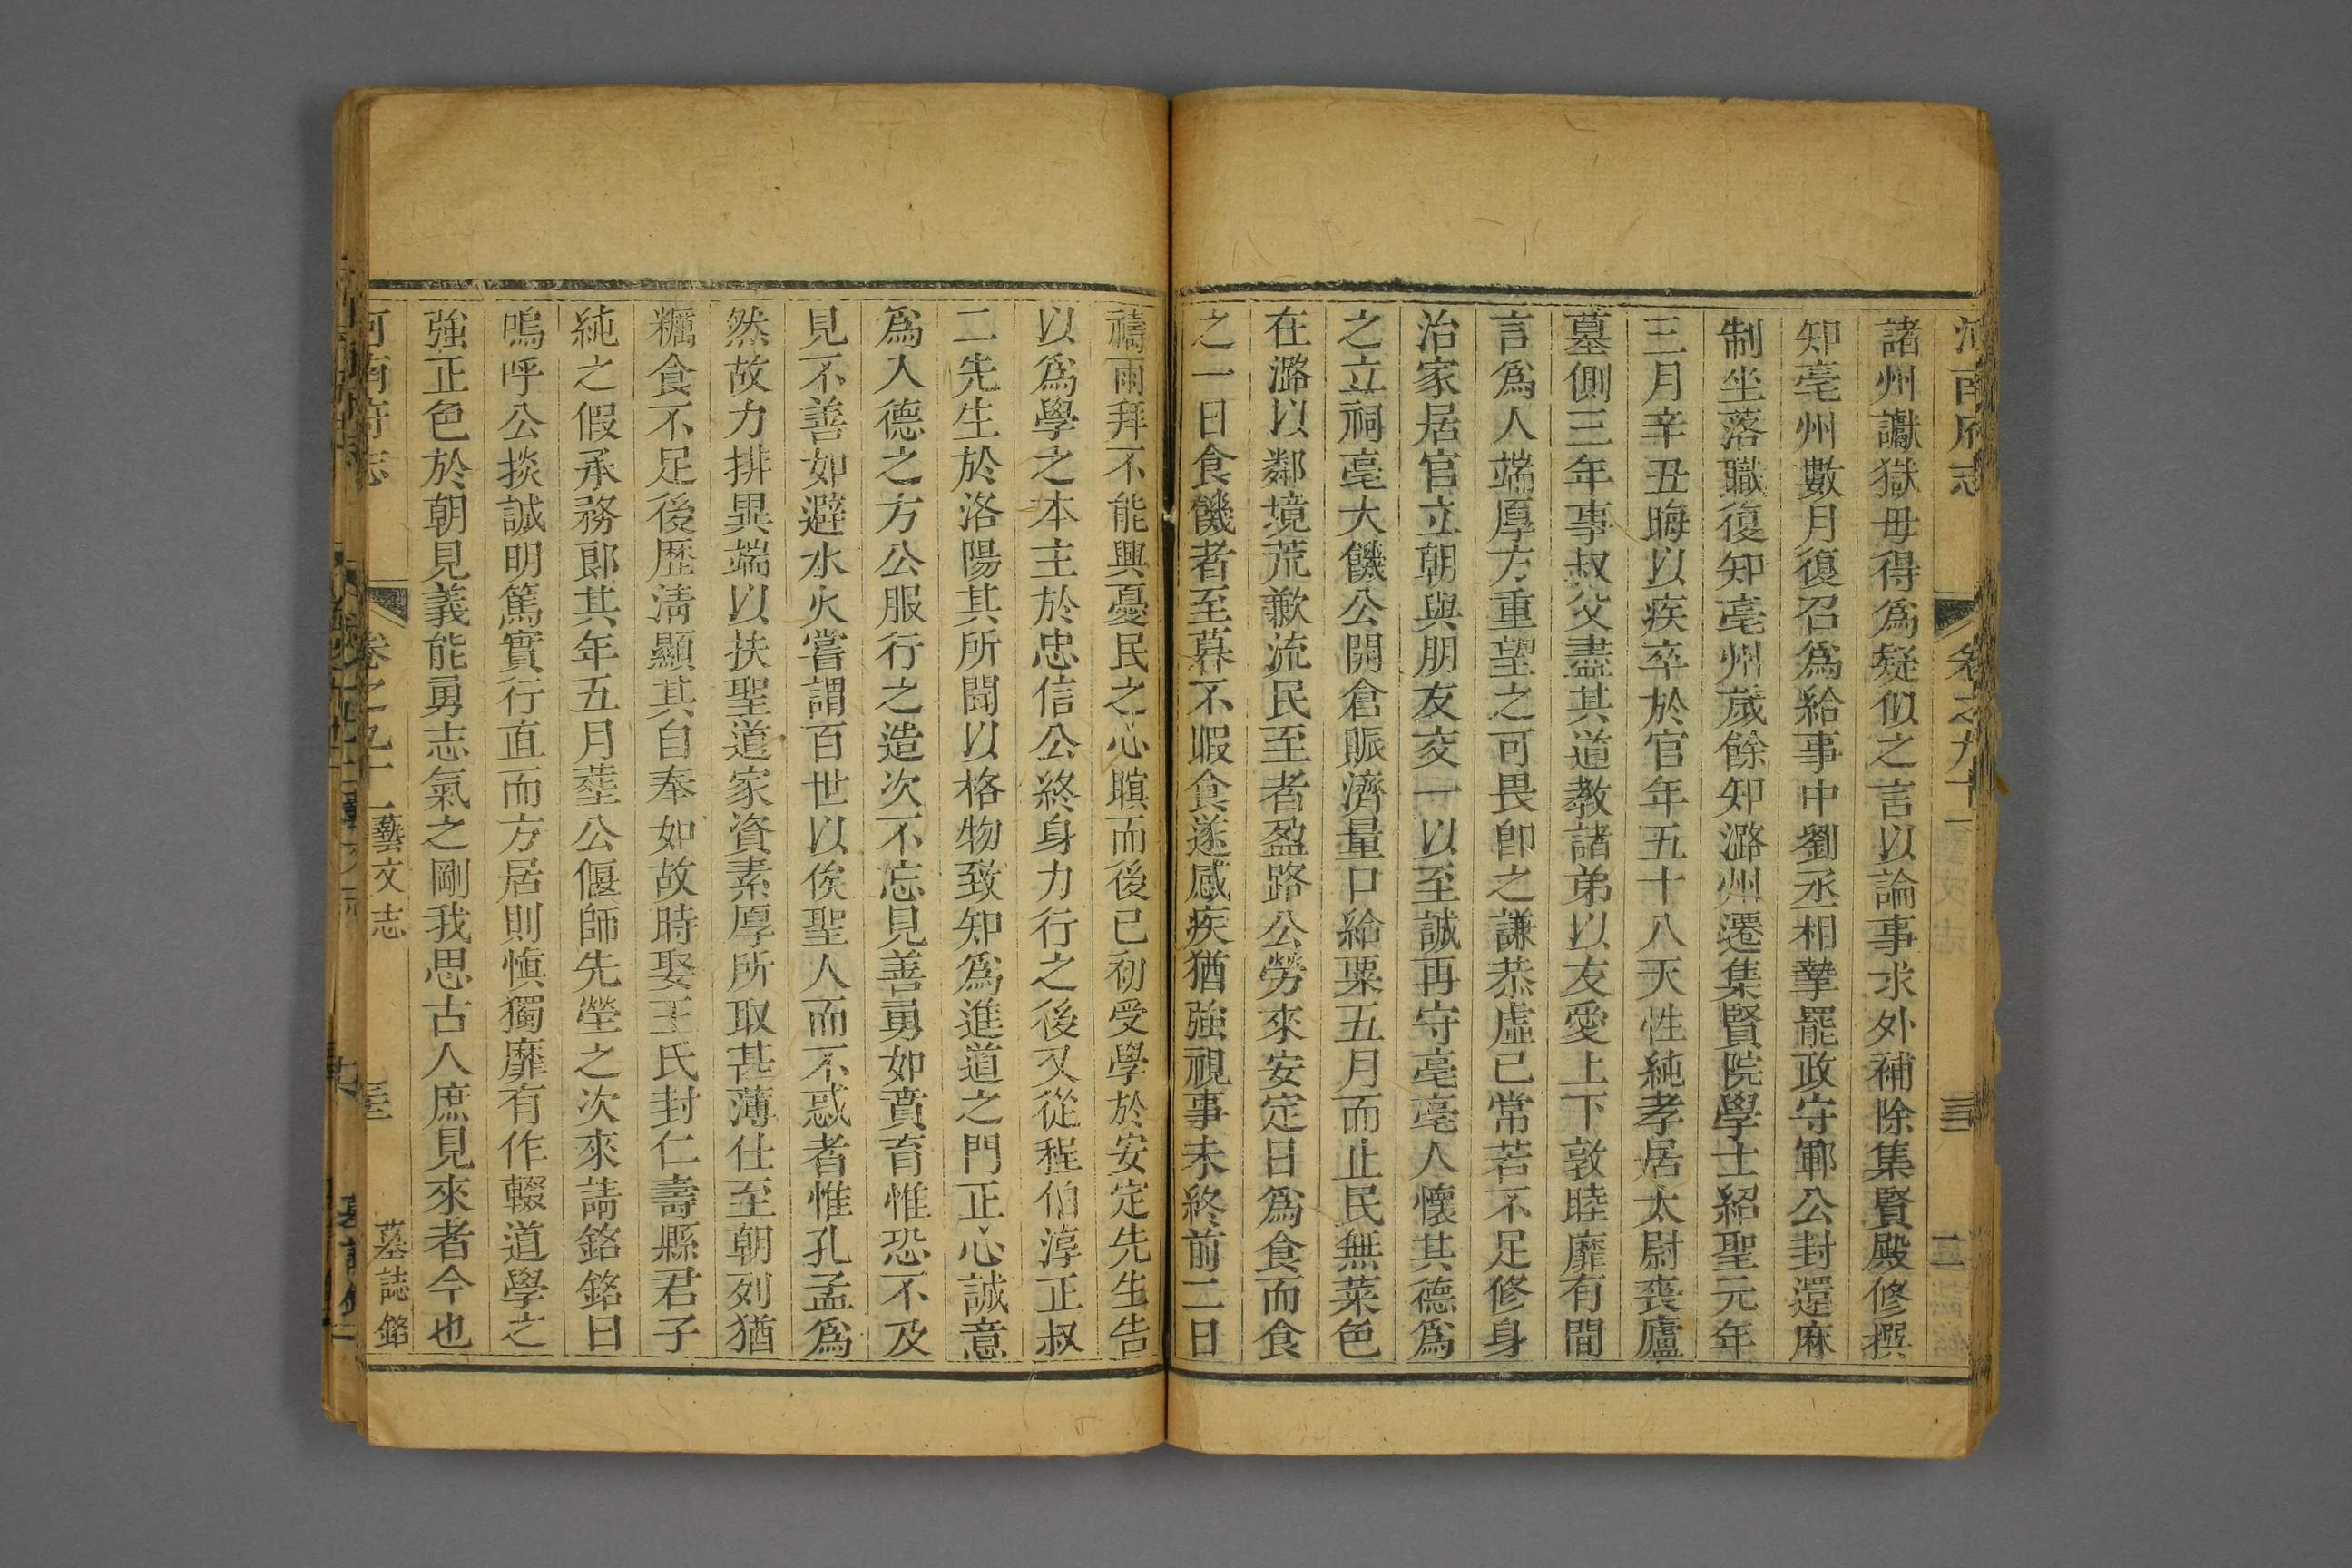 河南府志 卷之九十一
諸州讞獄毋得爲疑似之言以論事求外補除集賢殿修撰
知亳州數月復召爲給事中劉丞相摯罷政守鄆公封還麻
制坐落職復知亳州歲餘知潞州遷集賢院學士紹聖元年
三月辛丑晦以疾卒於官年五十八天性純孝居太尉喪廬
墓側三年事叔父盡其道教諸弟以友愛上下敦睦靡有間
言爲人端厚方重望之可畏卽之謙恭虛己常若不足修身
治家居官立朝與朋友交一以至誠再守亳亳人懷其德爲
之立祠亳大饑公開倉賑濟量口給粟五月而止民無菜色
在潞以鄰境荒歉流民至者盈路公勞來安定日爲食而食
之一日食饑者至暮不暇食遂感疾猶強視事未終前二日
禱雨拜不能興憂民之心瞋而後已初受學於安定先生告
以爲學之本主於忠信公終身力行之後又從程伯淳正叔
二先生於洛陽其所聞以格物致知爲進道之門正心誠意
爲入德之方公服行之造次不忘見善勇如賁育惟恐不及
見不善如避水火嘗謂百世以俟聖人而不惑者惟孔孟爲
然故力排異端以扶聖道家資素厚所取甚薄仕至朝列猶
糲食不足後歷淸顯其自奉如故時娶王氏封仁壽縣君子
純之假承務郎其年五月葬公偃師先塋之次來請銘銘曰
嗚呼公掞誠明篤實行直而方居則愼獨靡有作輟道學之
強正色於朝見義能勇志氣之剛我思古人庶見來者今也
河南府志 卷之九十一 藝文志 墓誌銘